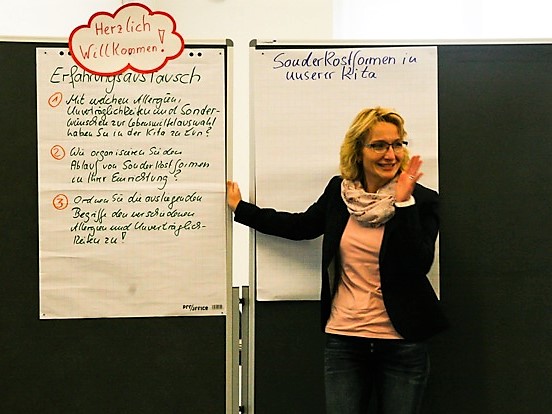 Herzlich
Willkommen!
Erfahrungsaustausch
1 Mit welchen Allergien,
Unverträglichkeiten und Sonder-
wünschen zur Lebensmittelauswahl
haben Sie in der Kita zu tun?
2 Wie organisieren Sie den
Ablauf von Sonderkostformen
in Ihrer Einrichtung?
3 Ordnen Sie die ausliegenden
Begriffe den verschiedenen
Allergien und Unverträglich-
keiten zu!
Sonderkostformen in
unserer Kita